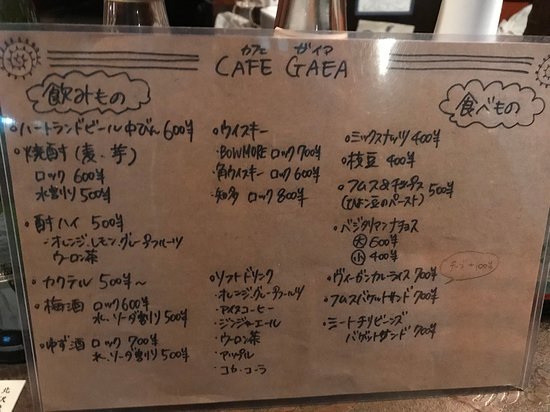 カフェ ガイア
CAFE GAEA
飲みもの
・ハートランドビール中びん 600半
・焼酎(麦、芋)
ロック 600半
水割り 500半
・酎ハイ 500半
・オレンジ、レモン、グレープフルーツ
ウーロン茶
・カクテル 500半〜
・梅酒 ロック600半
水、ソーダ割り 500半
・ゆず酒 ロック 700半
水、ソーダ割り 500半
・ウイスキー
・BOWMORE ロック 700半
・角ウイスキー ロック 600半
・知多 ロック 800半
・ソフトドリンク
・オレンジ、グレープフルーツ
・アイスコーヒー
・ジンジャーエール
・ウーロン茶
・アップル
・コカ・コーラ
食べもの
・ミックスナッツ 400半
・枝豆 400半
・フムス&チップス 500半
(ひよこ豆のペースト)
・ベジタリアンナチョス
大 600半
小 400半
・ヴィーガンカレーライス 700半
+100半
・フムスバゲットサンド 700半
・ミートチリビーンズ
バゲットサンド 700半